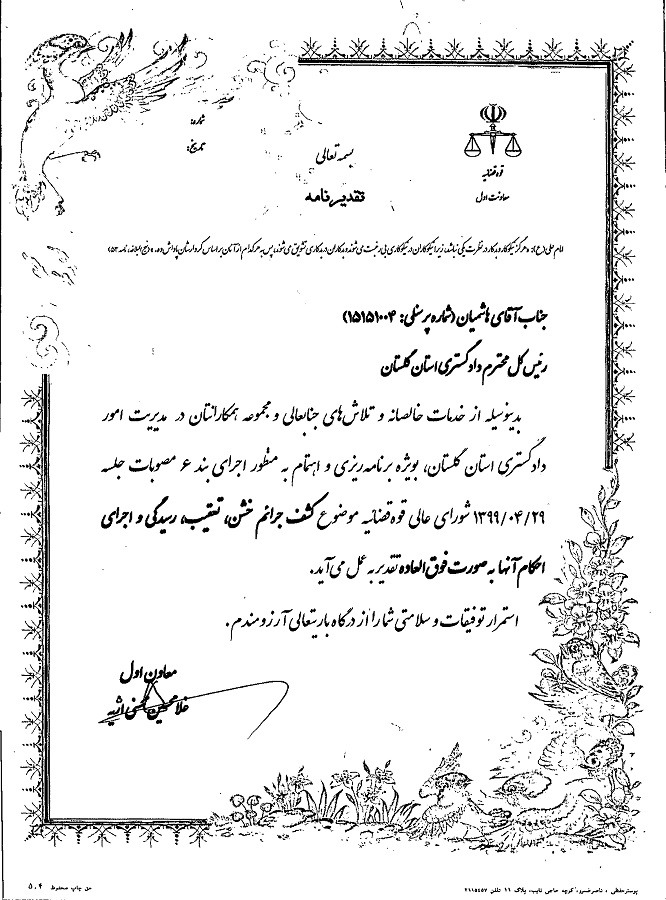 شماره:
تاریخ:
قوه قضائیه
معاونت اول
بسمه تعالی
تقدیرنامه
امام علی (ع): هرگز نیکوکار و بدکار در نظرت یکی نباشد، زیرا نیکوکاران در نیکوکاری بی رغبت می شوند و بدکاران در بدکاری تشویق می شوند، پس به هرکدام از آنان بر اساس کردارشان پاداش ده. (نهج البلاغه، نامه ۵۳)
جناب آقای هاشمیان (شماره پرسنلی: ۱۵۱۵۱۰۰۴)
رئیس کل محترم دادگستری استان گلستان
بدینوسیله از خدمات خالصانه و تلاش های جنابعالی و مجموعه همکارانتان در مدیریت امور
دادگستری استان گلستان، بویژه برنامه ریزی و اهتمام به منظور اجرای بند ۶ مصوبات جلسه
۱۳۹۹/۰۴/۲۹ شورای عالی قوه قضائیه موضوع کشف جرائم خشن، تعقیب، رسیدگی و اجرای
احکام آنها به صورت فوق العاده تقدیر به عمل می آید.
استمرار توفیقات و سلامتی شما را از درگاه باریتعالی آرزومندم.
معاون اول
غلامحسین محسنی اژیه
حق چاپ محفوظ ۵۰۴
پوسترحافظی ، ناصرخسرو، کوچه حاجی نایب، پلاک ۱۱ تلفن